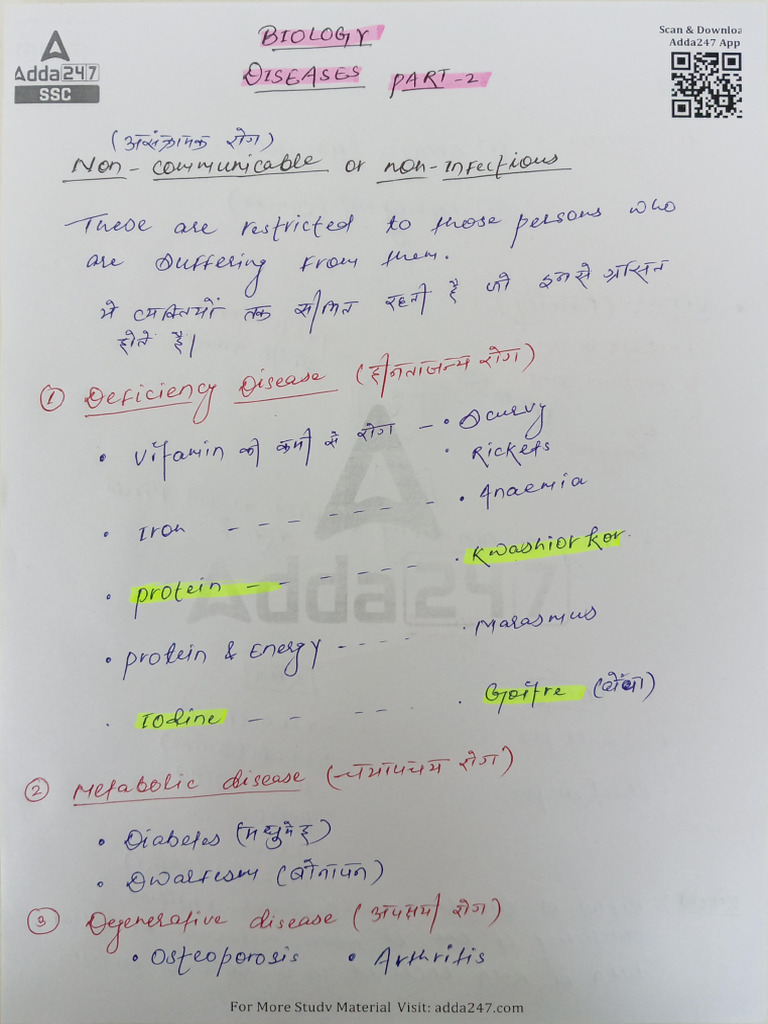 Scan & Downloa
Adda247 App
Adda247
SSC
BIOLOGY
DISEASES PART-2
(असंक्रामक रोग)
Non-communicable or non-Infectious
These are restricted to those persons who
are suffering from them.
ये व्यक्तियों तक सीमित रहती है जो इनसे ग्रसित
होते है।
① Deficiency Disease (हीनताजन्य रोग)
• Vitamin की कमी से रोग – • Scurvy
• Rickets
• Iron - - - - - - - • Anaemia
• Protein - - - - - - - • Kwashiorkor
• Protein & Energy - - - - • Marasmus
• Iodine - - - - - • Goitre (घेंघा)
② Metabolic disease (चयापचय रोग)
• Diabetes (मधुमेह)
• Dwarfism (बौनापन)
③ Degenerative disease (अपक्षय रोग)
• Osteoporosis • Arthritis
Adda247
For More Study Material Visit: adda247.com